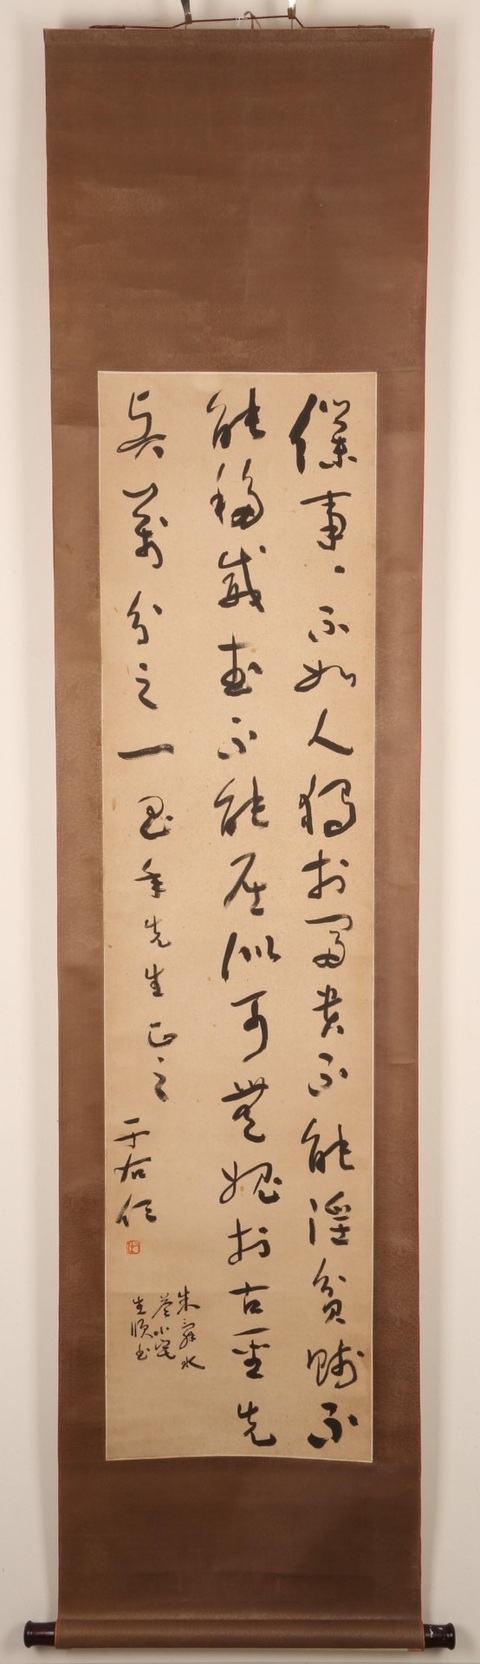 僕事〻不如人獨於富貴不能淫貧賤不
能移威武不能屈似可無媿於古聖先
賢萬分之一 年先生正之 于右任
朱舜水
答小宅
生順書